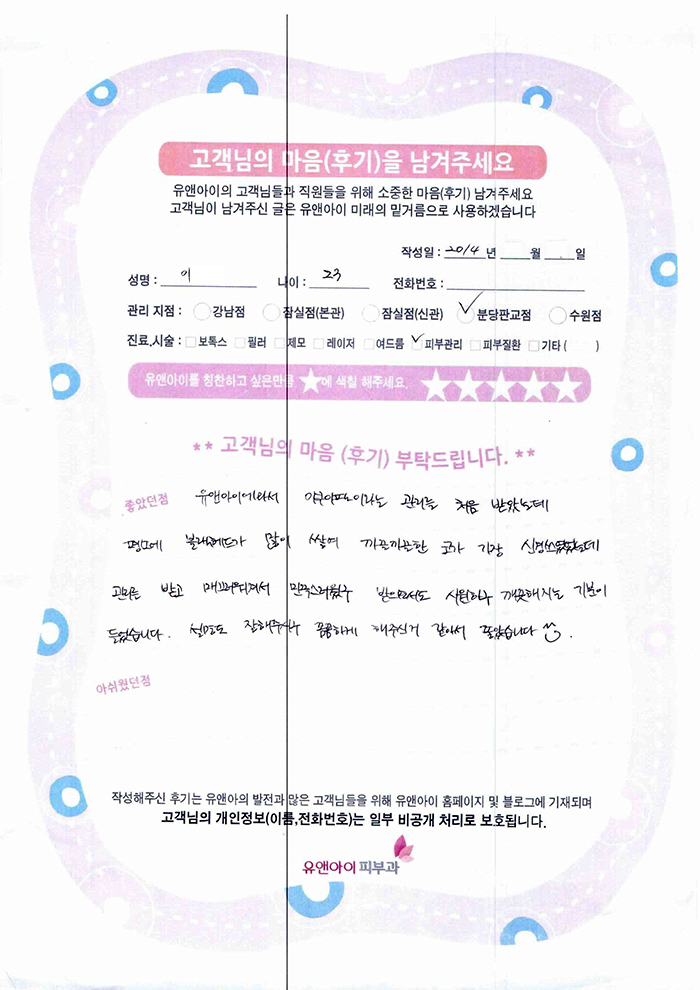 고객님의 마음(후기)을 남겨주세요
유앤아이의 고객님들과 직원들을 위해 소중한 마음(후기) 남겨주세요
고객님이 남겨주신 글은 유앤아이 미래의 밑거름으로 사용하겠습니다
작성일 : 2014 년 월 일
성명 : 이 나이 : 23 전화번호 :
관리 지점 : 강남점 잠실점(본관) 잠실점(신관) 분당판교점 수원점
진료,시술 : 보톡스 필러 제모 레이저 여드름 피부관리 피부질환 기타 ( )
유앤아이를 칭찬하고 싶은만큼 ★에 색칠 해주세요. ★★★★★
** 고객님의 마음 (후기) 부탁드립니다. **
좋았던점 유앤아이에와서 관리를 처음 받았는데
평소에 블랙헤드가 많이 쌓여 까끈까끈한 코가 가장 신경쓰였는데
관리를 받고 매끄러워져서 만족스러웠구 받으면서도 시원하구 깨끗해지는 기분이
들었습니다. 설명도 잘해주시구 꼼꼼하게 해주신거 같아서 좋았습니다 .
아쉬웠던점
작성해주신 후기는 유앤아의 발전과 많은 고객님들을 위해 유앤아이 홈페이지 및 블로그에 기재되며
고객님의 개인정보(이름,전화번호)는 일부 비공개 처리로 보호됩니다.
유앤아이 피부과